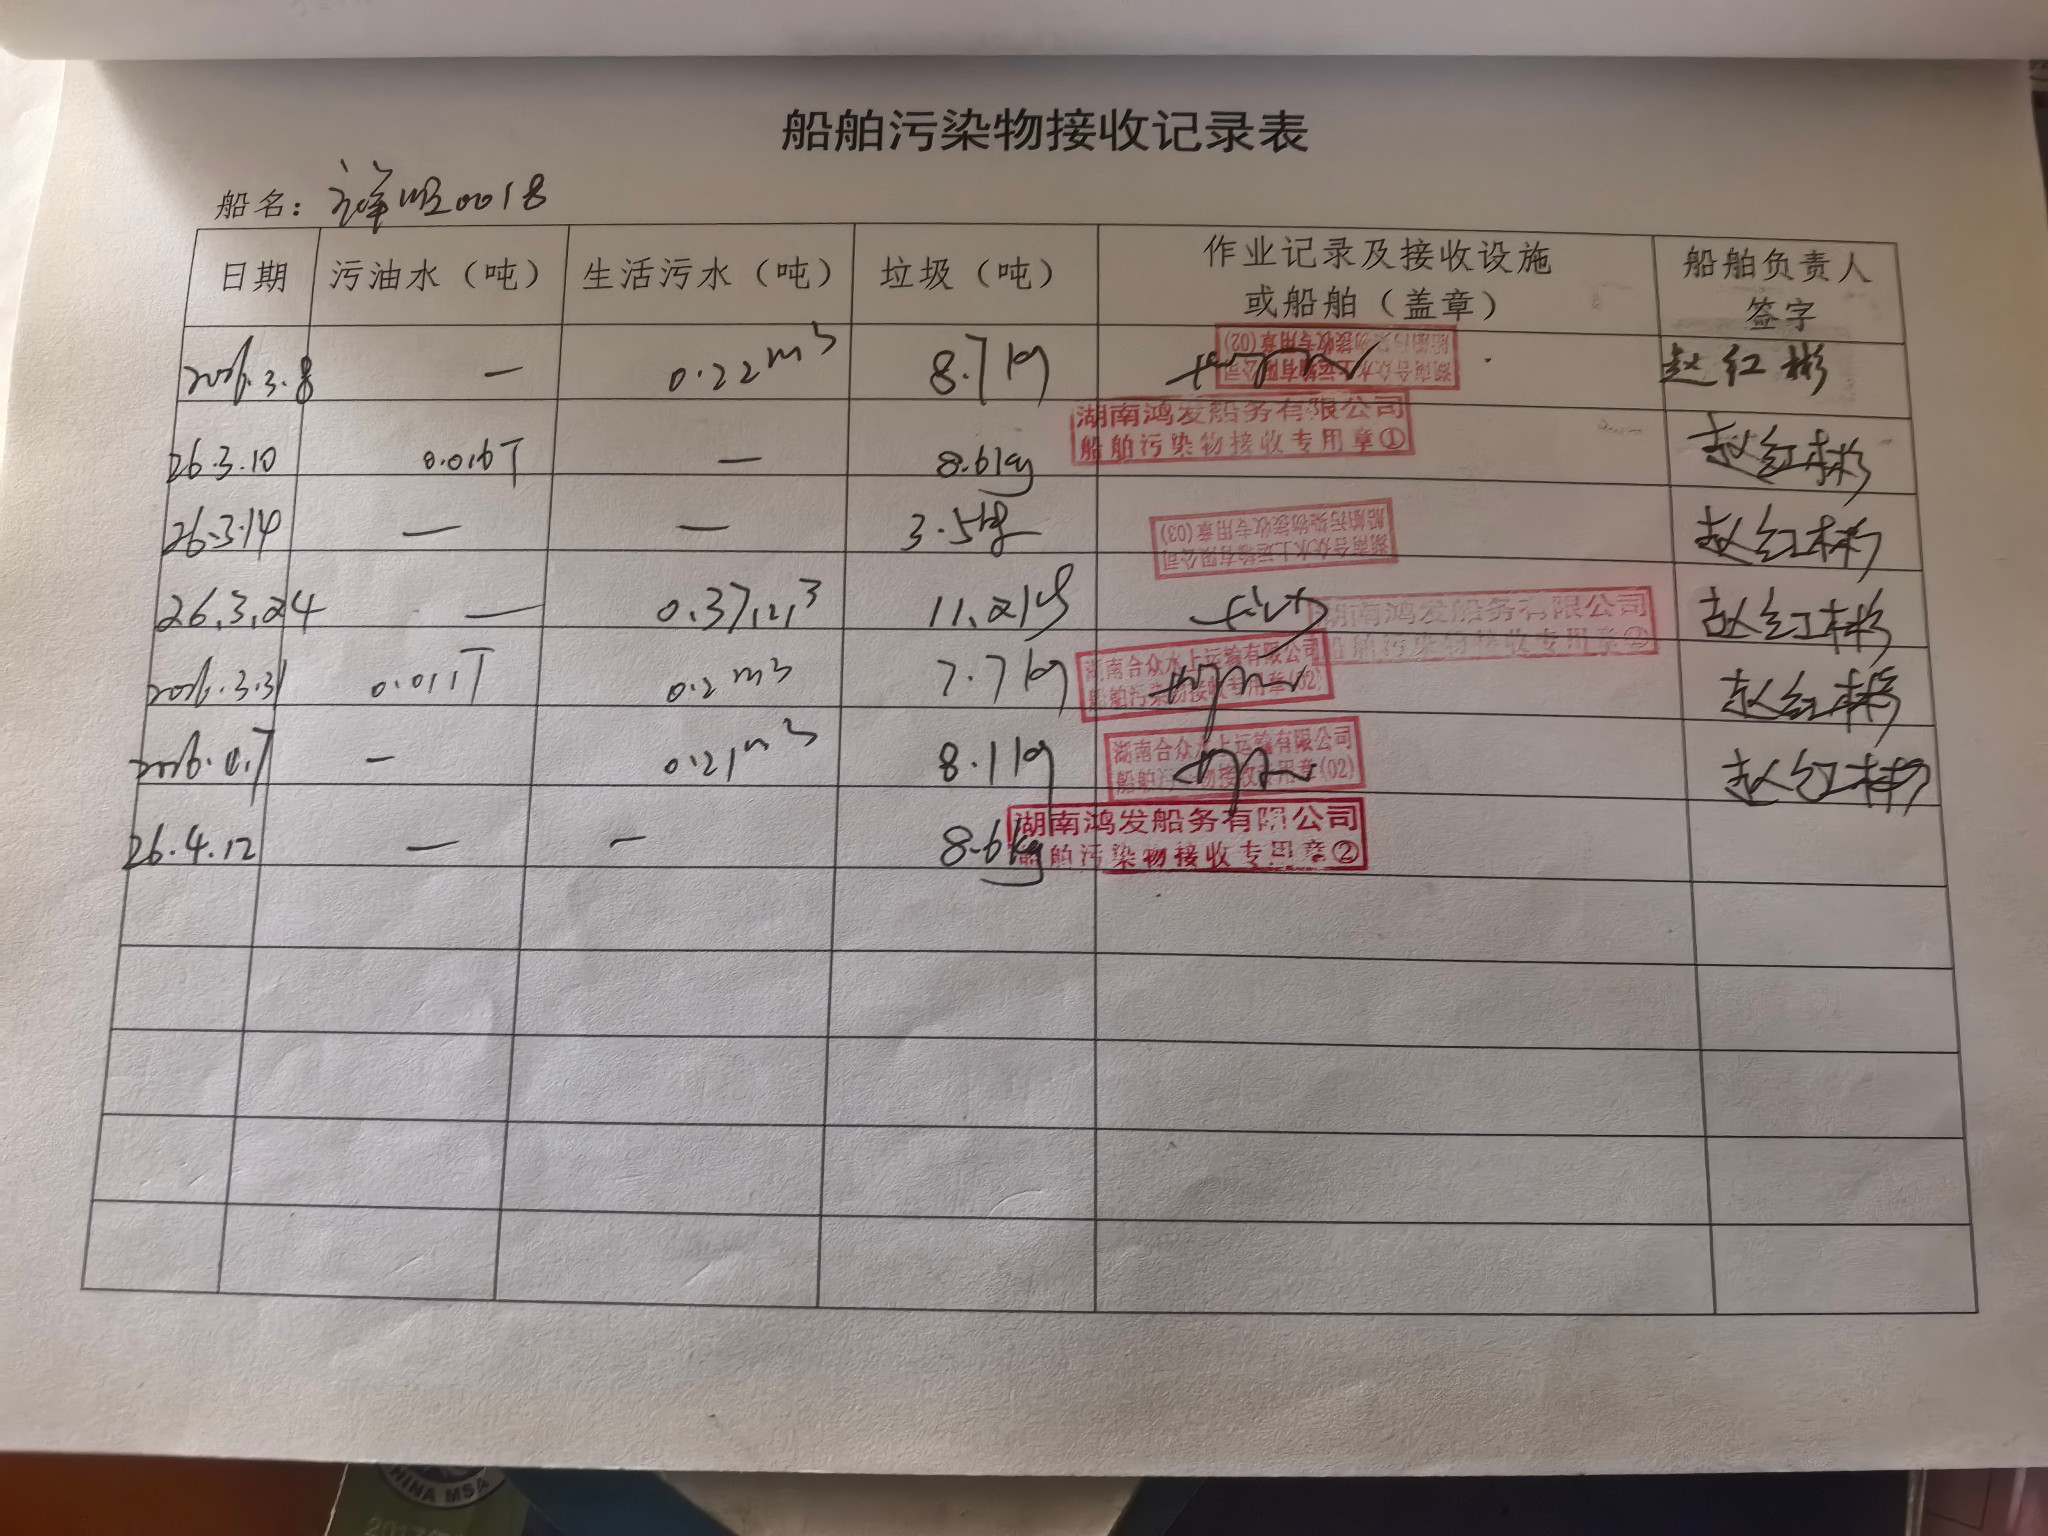 船舶污染物接收记录表
船名：祥顺0018
日期 污油水（吨） 生活污水（吨） 垃圾（吨） 作业记录及接收设施或船舶（盖章） 船舶负责人签字
2026.3.8 — 0.22m³ 8.7kg 湖南合众水上运输有限公司 船舶污染物接收专用章(02) 赵红彬
26.3.10 0.016T — 8.6kg 湖南鸿发船务有限公司 船舶污染物接收专用章① 赵红彬
26.3.14 — — 3.5kg 湖南合众水上运输有限公司 船舶污染物接收专用章(03) 赵红彬
26.3.24 — 0.37m³ 11.2kg 湖南鸿发船务有限公司 船舶污染物接收专用章② 赵红彬
2026.3.31 0.011T 0.2m³ 7.7kg 湖南合众水上运输有限公司 船舶污染物接收专用章(02) 赵红彬
2026.4.7 — 0.21m³ 8.1kg 湖南合众水上运输有限公司 船舶污染物接收专用章(02) 赵红彬
26.4.12 — — 8.6kg 湖南鸿发船务有限公司 船舶污染物接收专用章②
CHINA MSA